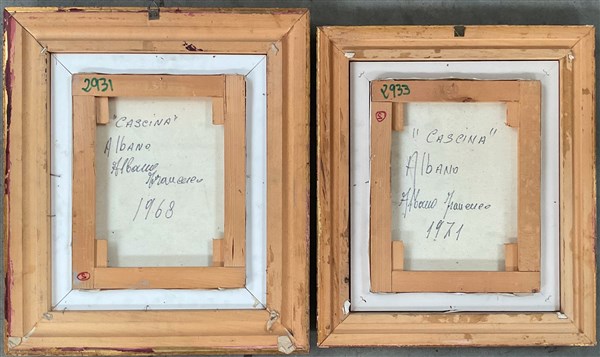 2931
"CASCINA"
Albano
Albano Francesco
1968
2933
"CASCINA"
Albano
Albano Francesco
1971